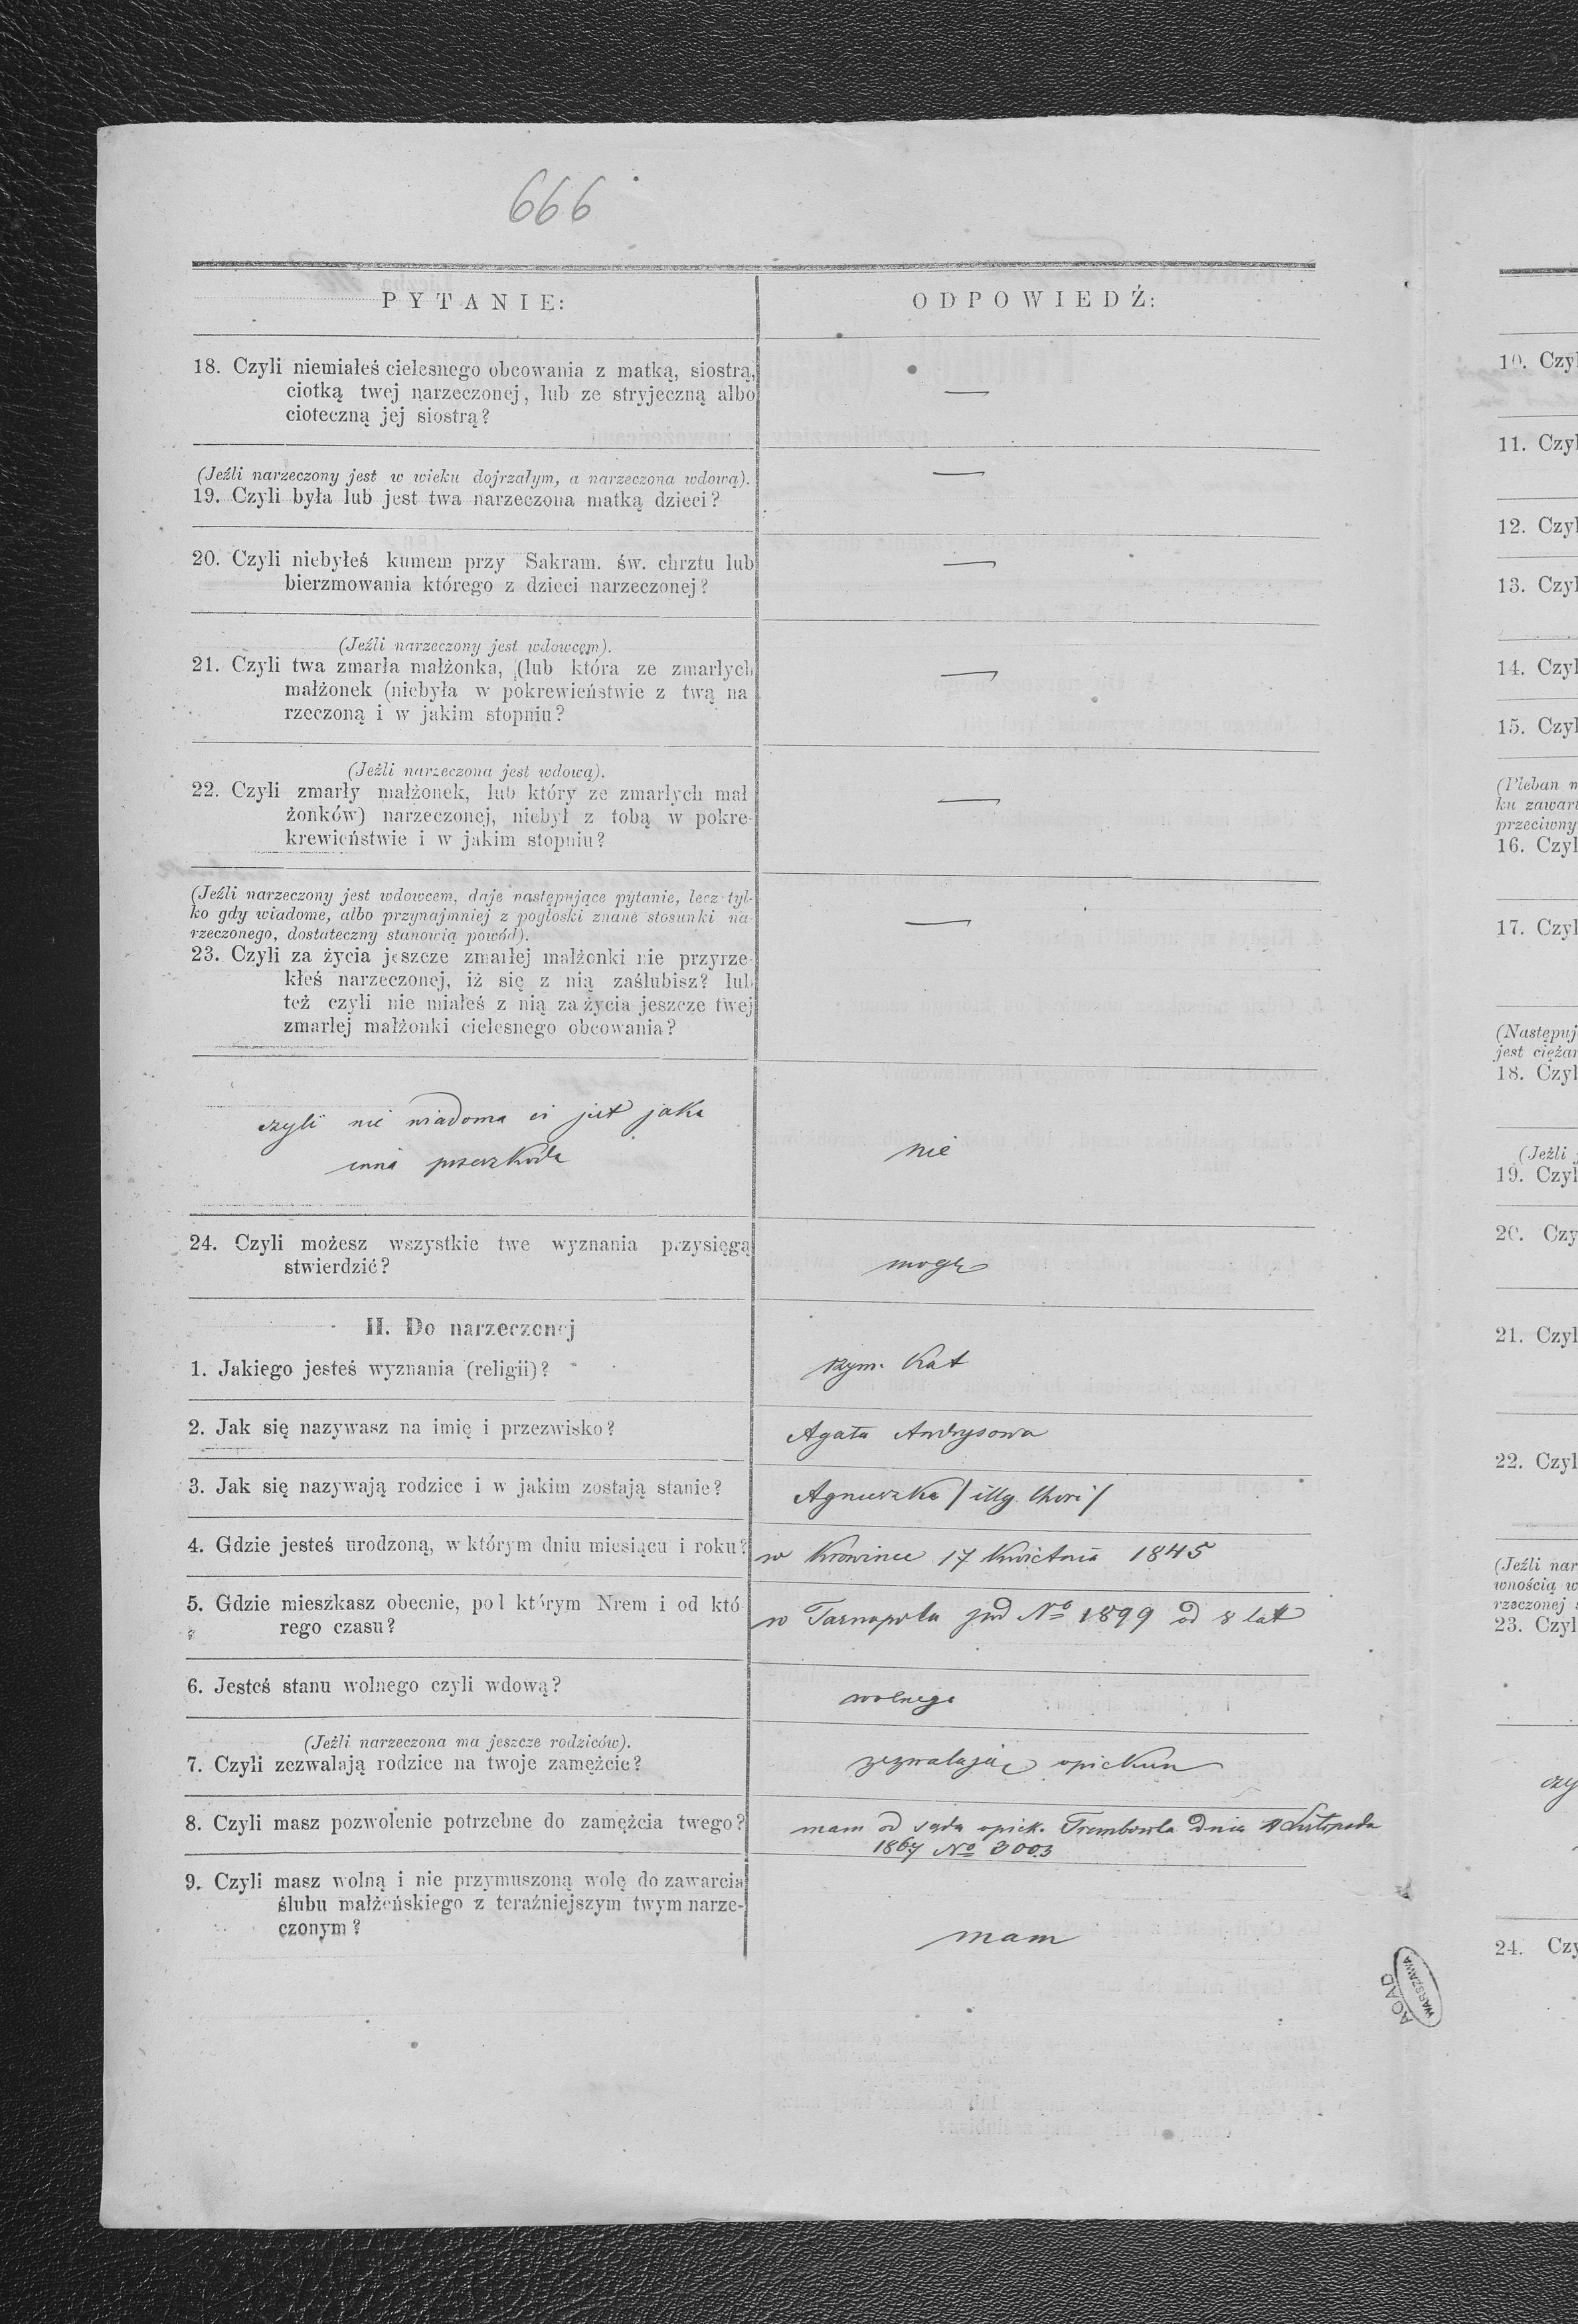 666
PYTANIE:
ODPOWIEDŹ:
18. Czyli niemiałeś cielesnego obcowania z matką, siostrą,
ciotką twej narzeczonej, lub ze stryjeczną albo
cioteczną jej siostrą?
—
(Jeźli narzeczony jest w wieku dojrzałym, a narzeczona wdową).
19. Czyli była lub jest twa narzeczona matką dzieci?
—
20. Czyli niebyłeś kumem przy Sakram. św. chrztu lub
bierzmowania którego z dzieci narzeczonej?
—
(Jeźli narzeczony jest wdowcem).
21. Czyli twa zmarła małżonka, (lub która ze zmarłych
małżonek (niebyła w pokrewieństwie z twą na
rzeczoną i w jakim stopniu?
—
(Jeźli narzeczona jest wdową).
22. Czyli zmarły małżonek, lub który ze zmarłych mał
żonków) narzeczonej, niebył z tobą w pokre-
krewieństwie i w jakim stopniu?
—
(Jeźli narzeczony jest wdowcem, daje następujące pytanie, lecz tyl-
ko gdy wiadome, albo przynajmniej z pogłoski znane stosunki na-
rzeczonego, dostateczny stanowią powód).
23. Czyli za życia jeszcze zmarłej małżonki nie przyrze-
kłeś narzeczonej, iż się z nią zaślubisz? lub
też czyli nie miałeś z nią za życia jeszcze twej
zmarłej małżonki cielesnego obcowania?
—
czyli nie wiadoma ci jest jaka
inna przeszkoda
nie
24. Czyli możesz wszystkie twe wyznania przysięgą
stwierdzić?
mogę
II. Do narzeczonej
1. Jakiego jesteś wyznania (religii)?
Rzym. Kat
2. Jak się nazywasz na imię i przezwisko?
Agata Andrysowa
3. Jak się nazywają rodzice i w jakim zostają stanie?
Agnieszka / illg. thori /
4. Gdzie jesteś urodzoną, w którym dniu miesiącu i roku?
w Krowince 17 Kwietnia 1845
5. Gdzie mieszkasz obecnie, pod którym Nrem i od któ
rego czasu?
w Tarnopolu pod No 1899 od 8 lat
6. Jesteś stanu wolnego czyli wdową?
wolnego
(Jeźli narzeczona ma jeszcze rodziców).
7. Czyli zezwalają rodzice na twoje zamęźcie?
zezwalając opiekun
8. Czyli masz pozwolenie potrzebne do zamęźcia twego?
mam od sądu opiek. Trembowla dnia Listopada
1867 No 3003
9. Czyli masz wolną i nie przymuszoną wolę do zawarcia
ślubu małżeńskiego z teraźniejszym twym narze-
czonym?
mam
AGAD
WARSZAWA
10. Czyl
11. Czyl
12. Czyl
13. Czyl
14. Czyl
15. Czyl
(Pleban m
ku zawart
przeciwny
16. Czyl
17. Czyl
(Następuj
jest ciężar
18. Czyl
(Jeźli j
19. Czyl
20. Czy
21. Czyl
22. Czyl
(Jeźli nar
wnością w
rzeczonej
23. Czyl
czy
24. Czy